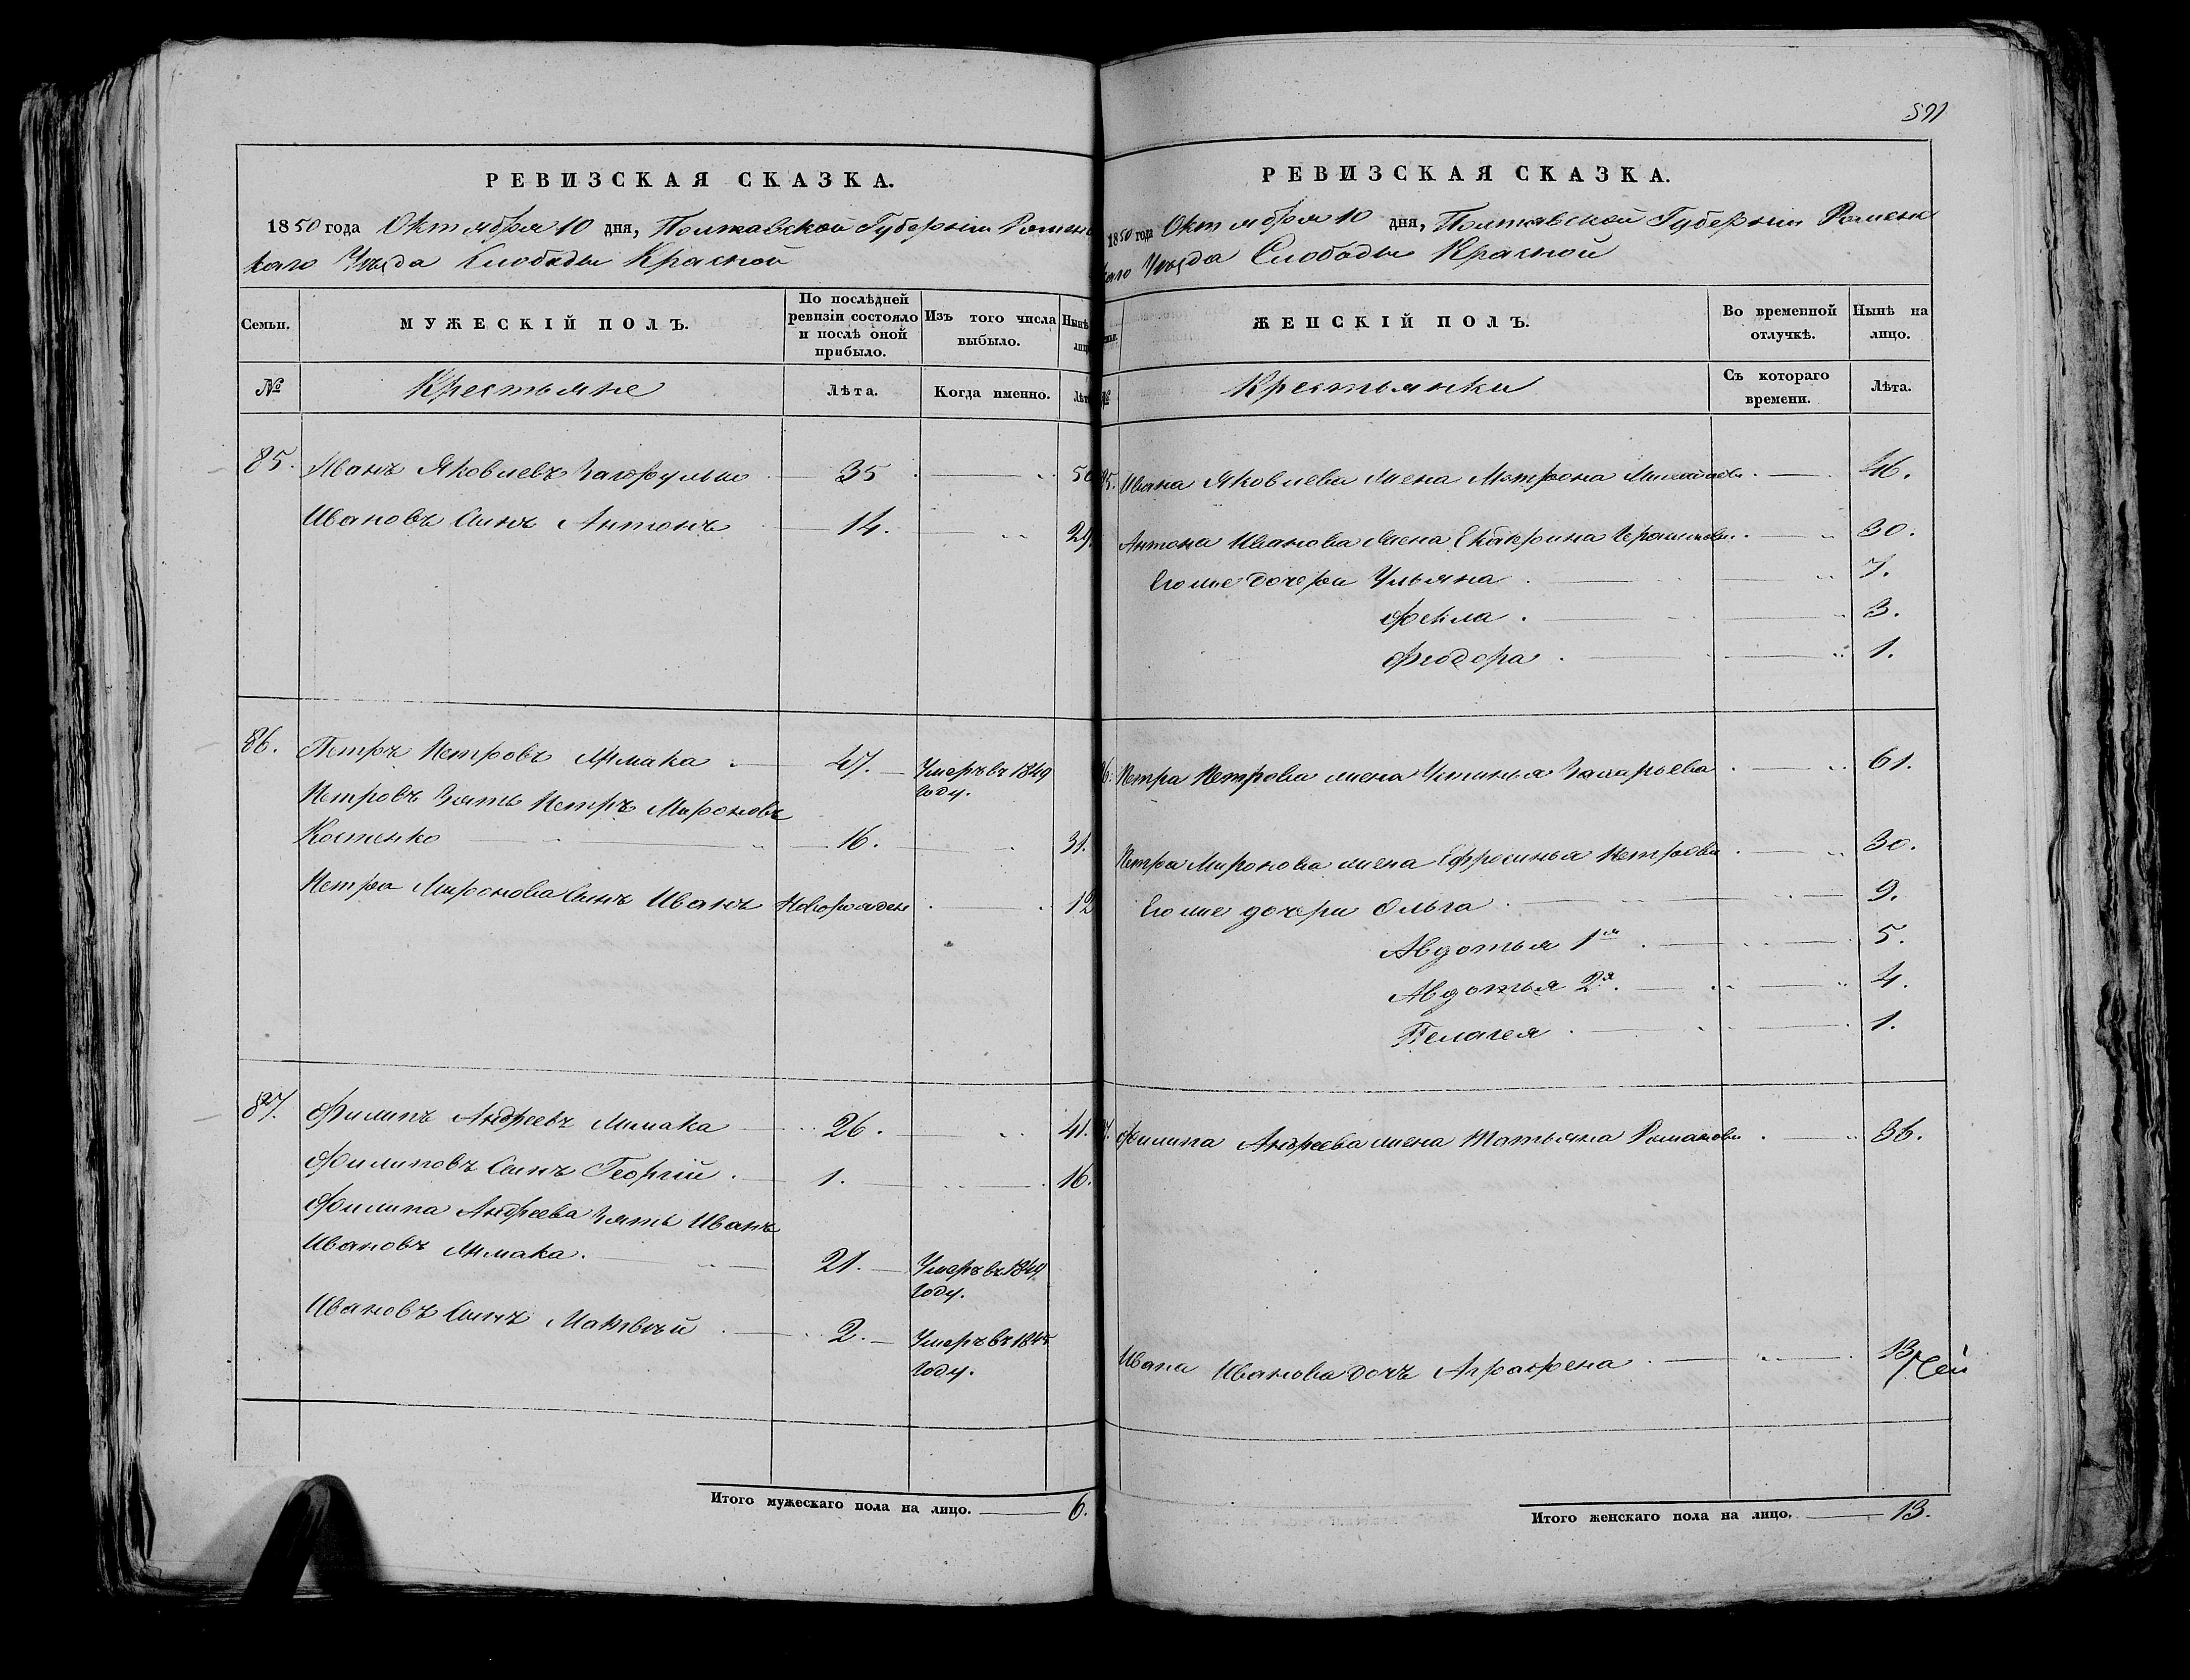 РЕВИЗСКАЯ СКАЗКА.
1850 года Октября 10 дня, Полтавской Губерніи Ромен
каго Уѣзда Слободы Красной
Семьи.
МУЖЕСКІЙ ПОЛЪ.
По послѣдней ревизіи состояло и послѣ оной прибыло.
Изъ того числа выбыло.
Нынѣ
№
Крестьяне
Лѣта.
Когда именно.
85. Иванъ Яковлевъ Загорулько 35
Ивановъ сынъ Антонъ 14. 29.
86. Петръ Петровъ Лимака 47. Умеръ въ 1849
году.
Петровъ зять Петръ Мироновъ
Костенко 16. 31.
Петра Миронова сынъ Иванъ Новорожден 12
87. Филипъ Андреевъ Лимака 26. 41.
Филиповъ сынъ Георгій 1. 16.
Филипа Андреева зять Иванъ
Ивановъ Лимака 21. Умеръ въ
году.
Ивановъ сынъ Матвѣй 2. Умеръ въ
году.
Итого мужескаго пола на лицо. 6.
591
РЕВИЗСКАЯ СКАЗКА.
1850 года Октября 10 дня, Полтавской Губерніи Роменс
каго Уѣзда Слободы Красной
ЖЕНСКІЙ ПОЛЪ.
Во временной отлучкѣ.
Нынѣ на лицо.
№
Крестьянки
Съ котораго времени.
Лѣта.
85. Ивана Яковлева жена Матрона 46.
Антона Иванова жена Екатерина 30.
Его же дочери Ульяна 7.
Фекла 3.
Феодора 1.
86. Петра Петрова жена Устинья Захарьева 61.
Петра Миронова жена Ефросинья Петрова 30.
Его же дочери Ольга 9.
Авдотья 1я 5.
Авдотья 2я 4.
Пелагея 1.
Филипа Андреева жена Татьяна Романова 36.
Ивана Иванова дочь Аграфена 13
Итого женскаго пола на лицо. 13.